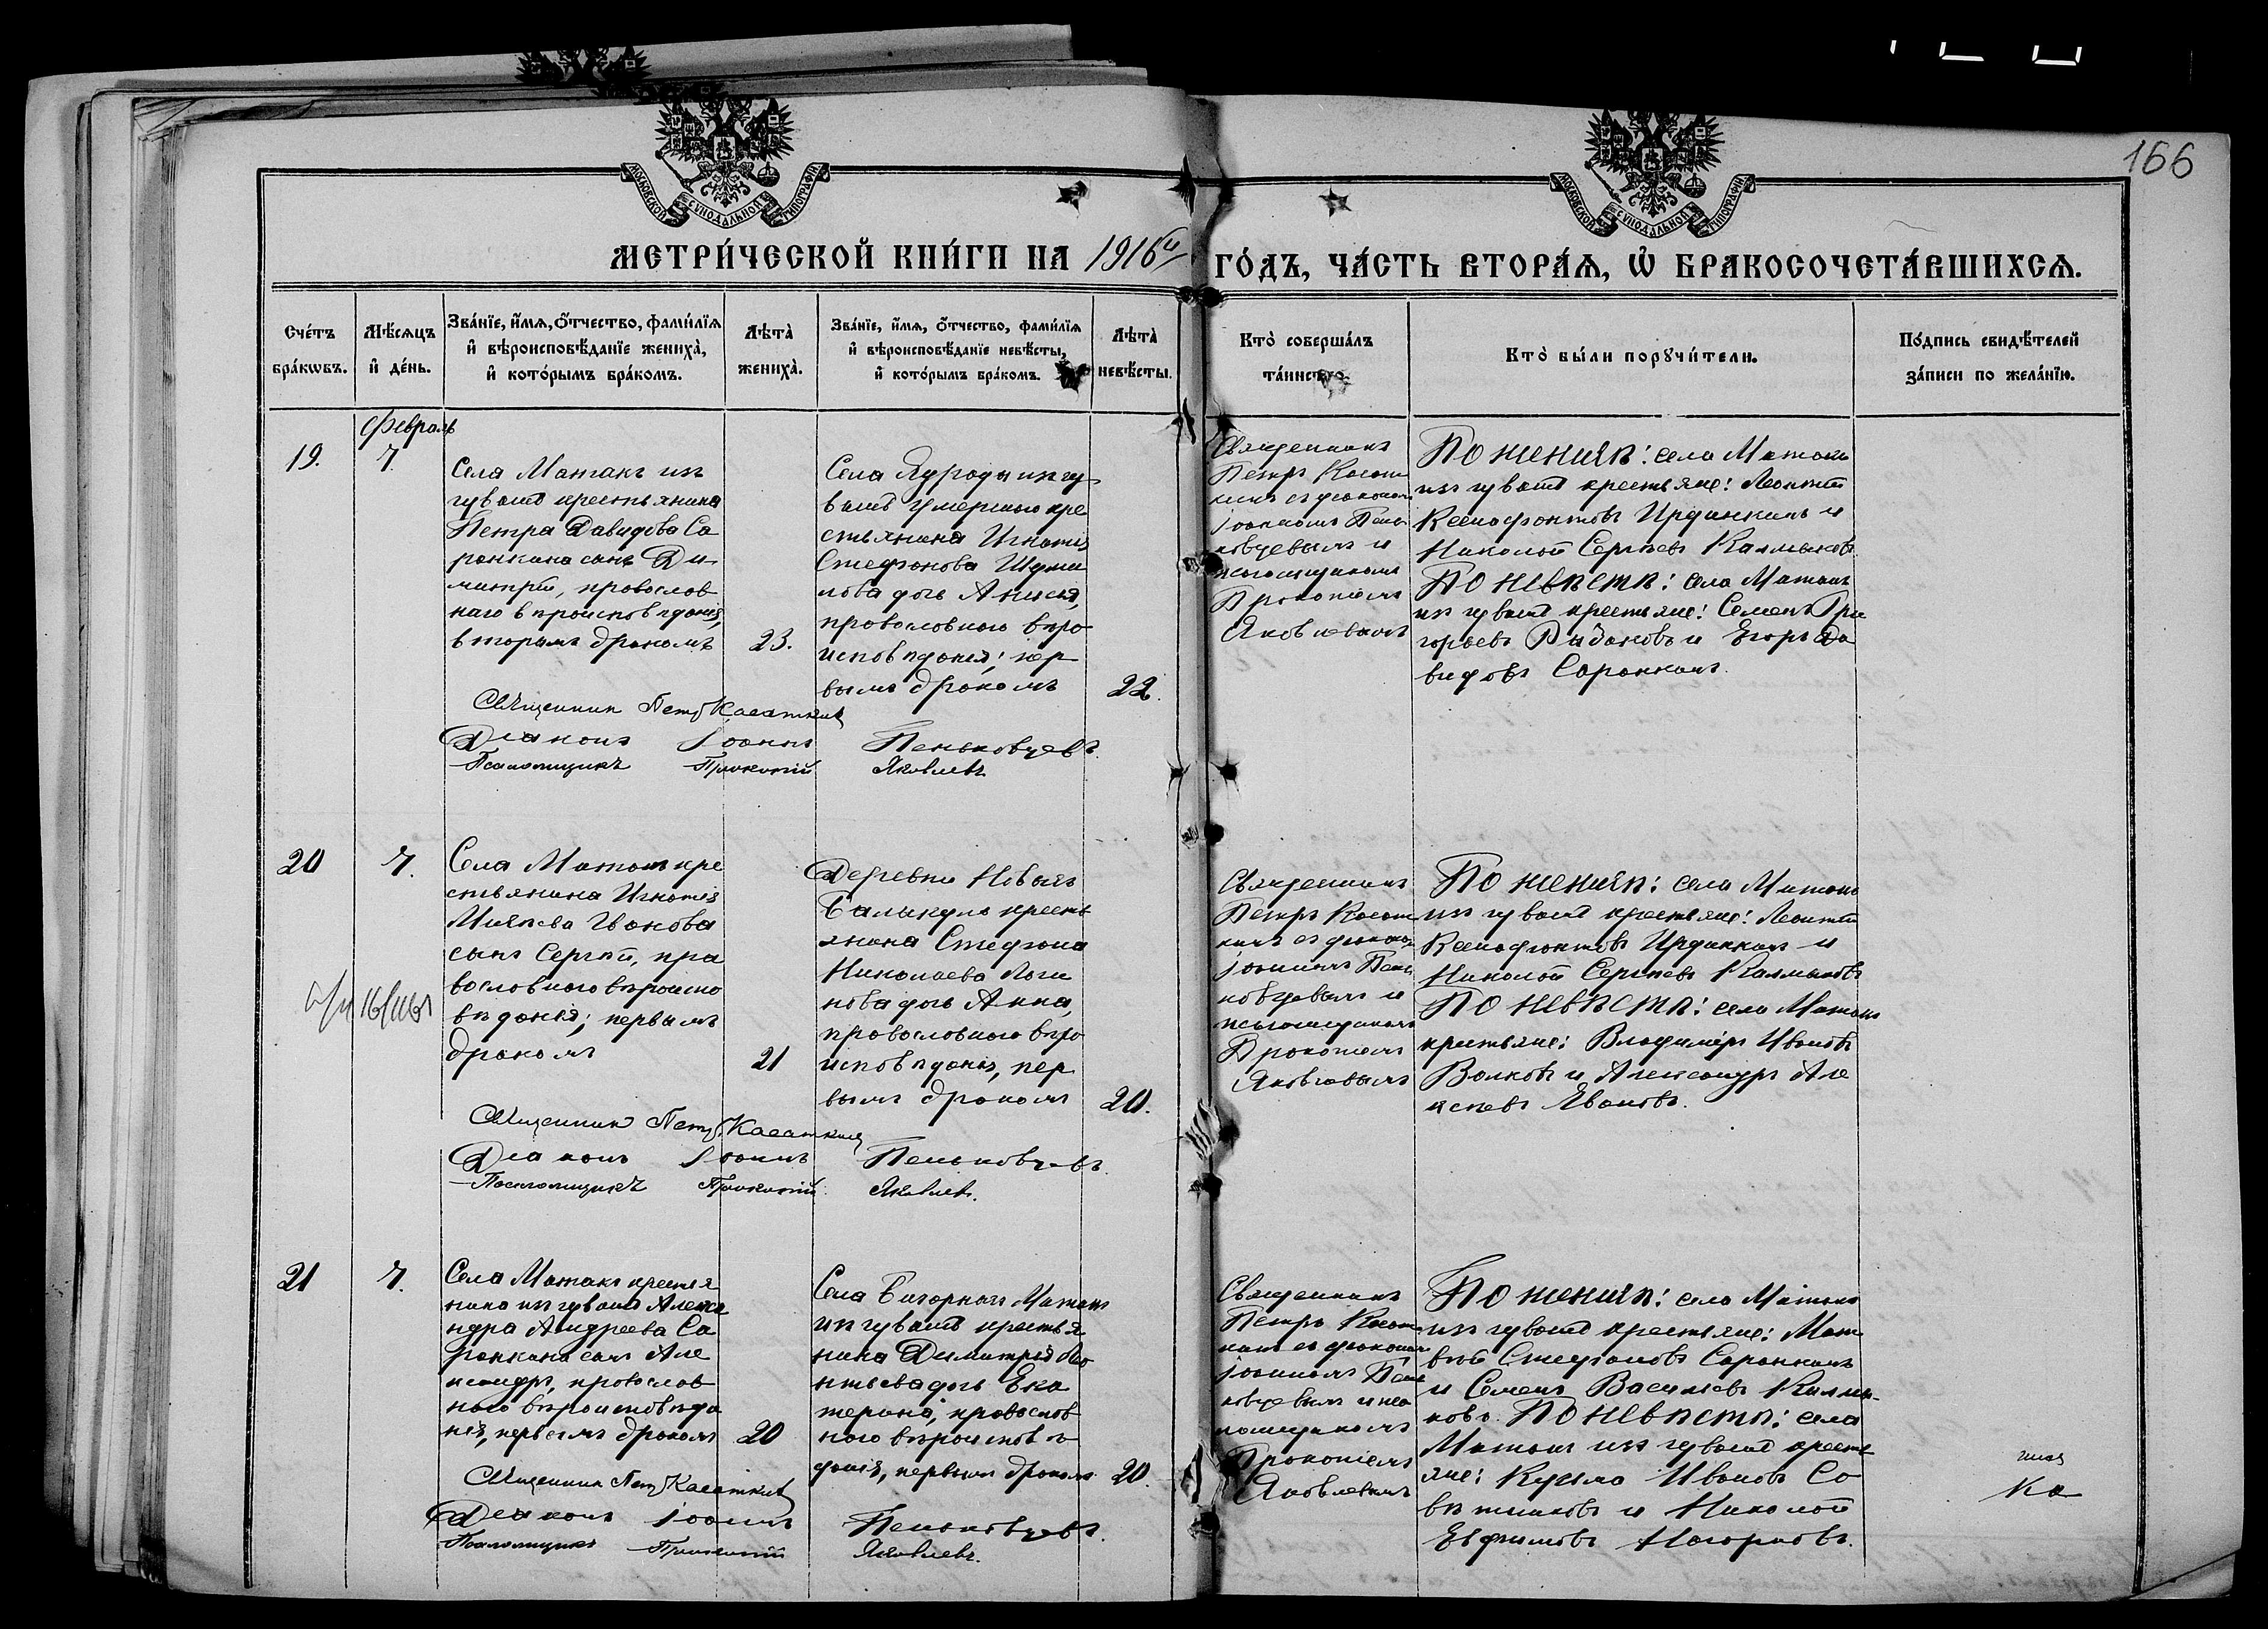 166
МОСКОВСКОЙ СУНОДАЛЬНОЙ ТИПОГРАФІИ
МОСКОВСКОЙ СУНОДАЛЬНОЙ ТИПОГРАФІИ
МЕТРИ́ЧЕСКОЙ КНИ́ГИ НА 1916й ГО́ДЪ, ЧА́СТЬ ВТОРА́Ѧ, Ѽ БРАКОСОЧЕТА́ВШИХСѦ.
Сче́тъ
бра́кѡвъ.
Мѣ́сѧцъ
и҆ де́нь.
Зва́нїе, и҆́мѧ, ѻ҆́тчество, фами́лїѧ
и҆ вѣроисповѣ́данїе жениха̀,
и҆ кото́рымъ бра́комъ.
Лѣта̀
жениха̀.
Зва́нїе, и҆́мѧ, ѻ҆́тчество, фами́лїѧ
и҆ вѣроисповѣ́данїе невѣ́сты,
и҆ кото́рымъ бра́комъ.
Лѣта̀
невѣ́сты.
Кто̀ соверша́лъ
та́инство.
Кто̀ бы́ли порꙋчи́тели.
По́дпись свидѣ́телей
за́писи по жела́нїю.
Февраль
19.
7.
Села Матакъ изъ
чувашъ крестьянина
Петра Давидова Са
ранкина сынъ Ди
митрій, православ
наго вѣроисповѣданія,
вторымъ бракомъ
23.
Села Ядроды изъ чу
вашъ умершаго кре
стьянина Игнатія
Стефанова Шуми
лова дочь Анисія,
православнаго вѣро
исповѣданія; пер
вымъ бракомъ
22.
Священникъ
Петръ Касат
кинъ съ діакономъ
Іоанномъ Пень
ковцевымъ и
псаломщикомъ
Прокопіемъ
Яковлевымъ
По женихѣ: села Матакъ
изъ чувашъ крестьяне: Леонтій
Ксенофонтовъ Ирданкинъ и
Николай Сергѣевъ Калмыковъ.
По невѣстѣ: села Матакъ
изъ чувашъ крестьяне: Семенъ Гри
горьевъ Рыбаковъ и Егоръ Да
видовъ Саранкинъ.
Священникъ Петръ Касаткинъ
Діаконъ Іоаннъ Пеньковцевъ.
Псаломщикъ Прокопій Яковлевъ
20
7.
Села Матакъ кре
стьянина Игнатія
Михѣева Иванова
сынъ Сергѣй, пра
вославнаго вѣроиспо
вѣданія; первымъ
бракомъ
21
Деревни Новыхъ
Салыкуль кресть
янина Стефана
Николаева Логи
нова дочь Анна,
православнаго вѣро
исповѣданія, пер
вымъ бракомъ
20.
Священникъ
Петръ Касат
кинъ съ діакономъ
Іоанномъ Пень
ковцевымъ и
псаломщикомъ
Прокопіемъ
Яковлевымъ
По женихѣ: села Матакъ
изъ чувашъ крестьяне: Леонтій
Ксенофонтовъ Ирданкинъ и
Николай Сергѣевъ Калмыковъ
По невѣстѣ: села Матакъ
крестьяне: Владиміръ Ивановъ
Волковъ и Александръ Але
ксѣевъ Ивановъ.
Священникъ Петръ Касаткинъ
Діаконъ Іоаннъ Пеньковцевъ.
Псаломщикъ Прокопій Яковлевъ.
21
7.
Села Матакъ крестья
нина изъ чувашъ Алекса
ндра Андреева Са
ранкина сынъ Але
ксандръ, православ
наго вѣроисповѣда
нія, первымъ бракомъ
20
Села Базарныхъ Матакъ
изъ чувашъ крестья
нина Димитрія Лео
нтьева дочь Ека
терина, православ
наго вѣроисповѣ
данія, первымъ бракомъ
20.
Священникъ
Петръ Касат
кинъ съ діакономъ
Іоанномъ Пень
ковцевымъ и пса
ломщикомъ
Прокопіемъ
Яковлевымъ
По женихѣ: села Матакъ
изъ чувашъ крестьяне: Мат
вѣй Стефановъ Саранкинъ
и Семенъ Васильевъ Калмы
ковъ. По невѣстѣ: села
Матакъ изъ чувашъ кресть
яне: Кузьма Ивановъ Со
вѣтниковъ и Николай
Евфимовъ Нагорновъ.
Священникъ Петръ Касаткинъ
Діаконъ Іоаннъ Пеньковцевъ.
Псаломщикъ Прокопій Яковлевъ.